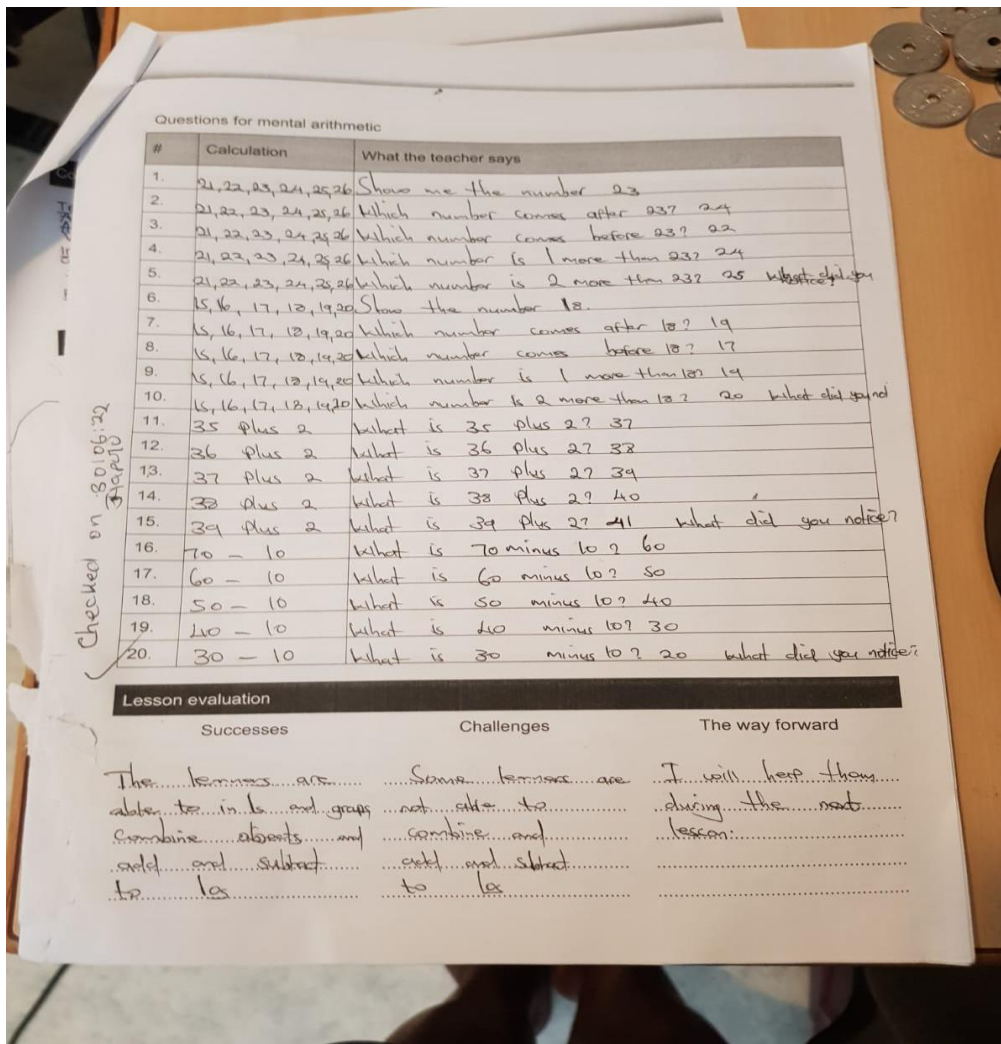 Questions for mental arithmetic
# Calculation What the teacher says
1. 21,22,23,24,25,26 Show me the number 23
2. 21,22,23,24,25,26 Which number comes after 23? 24
3. 21,22,23,24,25,26 Which number comes before 23? 22
4. 21,22,23,24,25,26 Which number is 1 more than 23? 24
5. 21,22,23,24,25,26 Which number is 2 more than 23? 25 What did you notice?
6. 15,16,17,18,19,20 Show the number 18.
7. 15,16,17,18,19,20 Which number comes after 18? 19
8. 15,16,17,18,19,20 Which number comes before 18? 17
9. 15,16,17,18,19,20 Which number is 1 more than 18? 19
10. 15,16,17,18,19,20 Which number is 2 more than 18? 20 What did you
11. 35 plus 2 What is 35 plus 2? 37
12. 36 plus 2 What is 36 plus 2? 38
13. 37 plus 2 What is 37 plus 2? 39
14. 38 plus 2 What is 38 plus 2? 40
15. 39 plus 2 What is 39 plus 2? 41 What did you notice?
16. 70 - 10 What is 70 minus 10? 60
17. 60 - 10 What is 60 minus 10? 50
18. 50 - 10 What is 50 minus 10? 40
19. 40 - 10 What is 40 minus 10? 30
20. 30 - 10 What is 30 minus 10? 20 What did you notice?
Checked on 30/06/22
Lesson evaluation
Successes Challenges The way forward
The lernners are
able to in 1s and
Combine objects and
add and subtract
to
Some lernners are
not able to
combine and
add and subtract
to
I will help them
during the next
lesson.